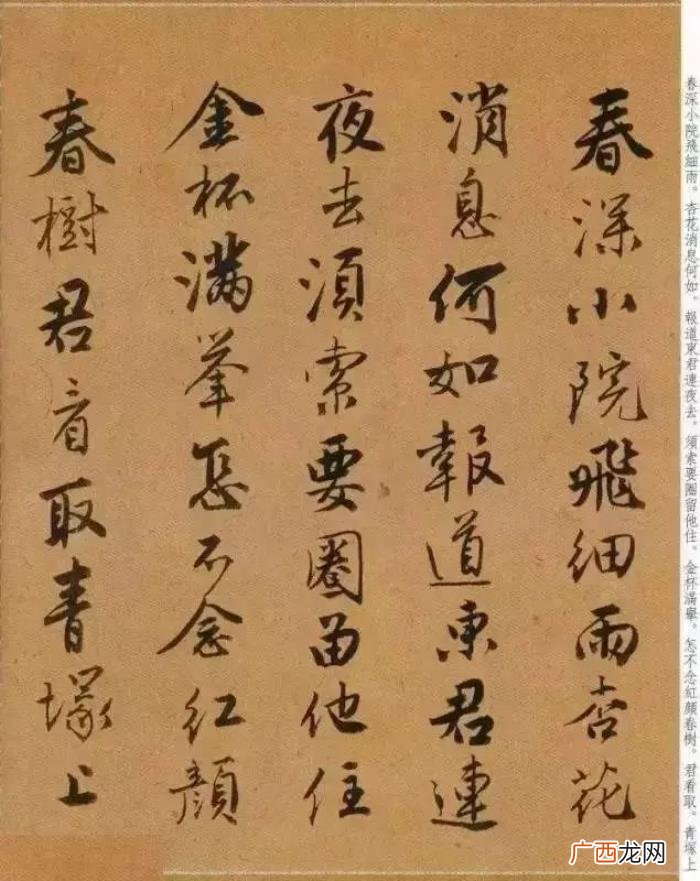 春深小院飛細雨杏花
消息何如報道東君連
夜去須索要圈留他住
金杯滿舉怎不念紅顏
春樹君看取青塚上
春深小院飛細雨。杏花消息何如。報道東君連夜去。須索要圈留他住。金杯滿舉。怎不念紅顏春樹。君看取。青塚上
广西龙网